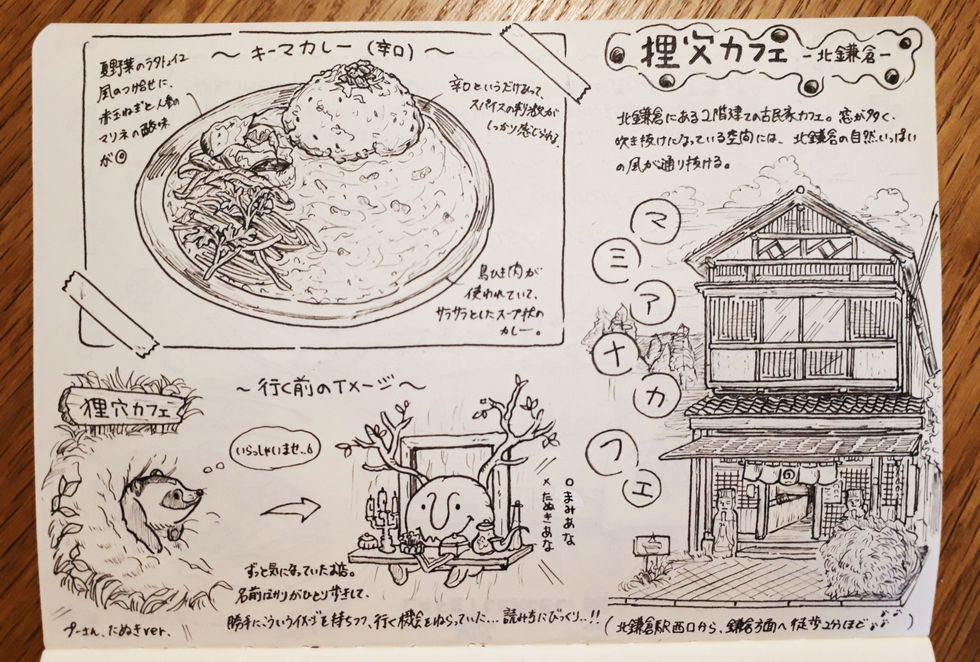 ～ キーマカレー (辛口) ～
夏野菜のラタトゥイユ
風のつけ合せに、
赤玉ねぎと人参の
マリネの酸味
が◎
辛口というだけあって、
スパイスの刺激が
しっかり感じられる。
鳥ひき肉が
使われていて、
サラサラとしたスープ状の
カレー。
狸穴カフェ -北鎌倉-
北鎌倉にある2階建ての古民家カフェ。窓が多く、
吹き抜けになっている空間には、北鎌倉の自然いっぱい
の風が通り抜ける。
マ
ミ
ア
ナ
カ
フ
ェ
～ 行く前のイメージ ～
狸穴カフェ
いらっしゃいませ..。
○ まみあな
× たぬきあな
ずっと気になっていたお店。
名前ばかりがひとり歩きして、
勝手にこういうイメージを持ちつつ、行く機会をねらっていた...読み方にびっくり..!!
プーさん、たぬきver.
(北鎌倉駅西口から、鎌倉方面へ徒歩2分ほど)